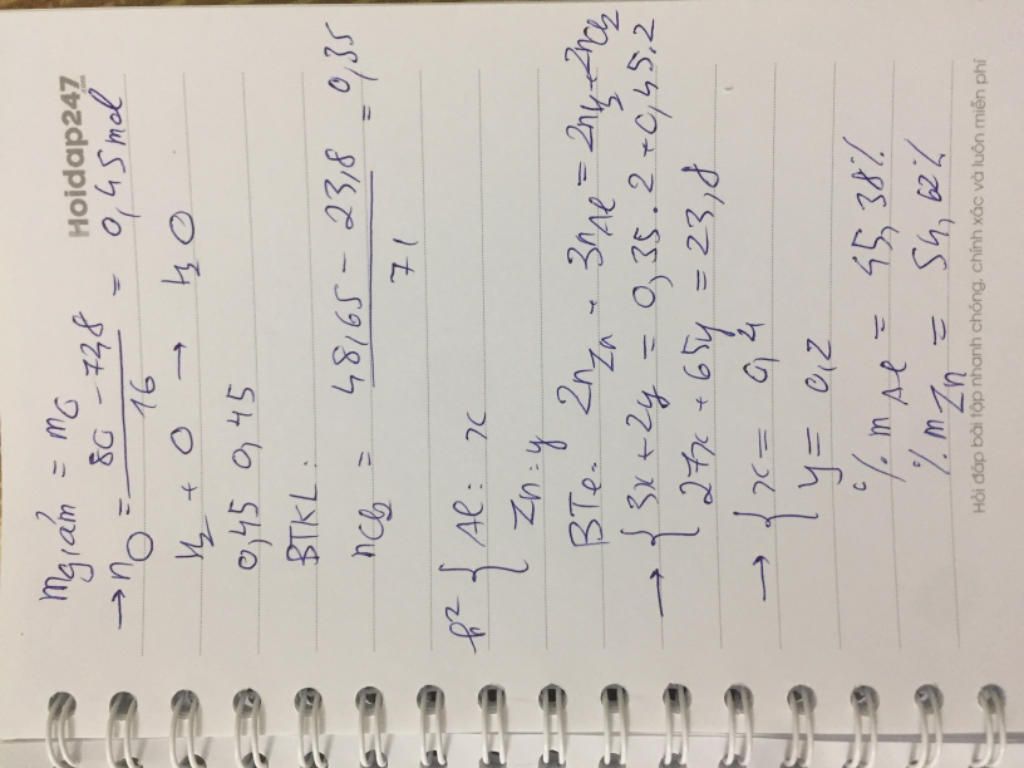 Hoidap247
.com
m giảm = mO
→ nO = (80 - 72,8)/16 = 0,45 mol
H2 + O → H2O
0,45 0,45
BTKL:
nCl2 = (48,65 - 23,8)/71 = 0,35
h² { Al: x
Zn: y
BTe. 2nZn + 3nAl = 2nH2 + 2nCl2
→ { 3x + 2y = 0,35.2 + 0,45.2
27x + 65y = 23,8
→ { x = 0,4
y = 0,2
% mAl = 45,38%
% mZn = 54,62%
Hỏi đáp bài tập nhanh chóng, chính xác và luôn miễn phí